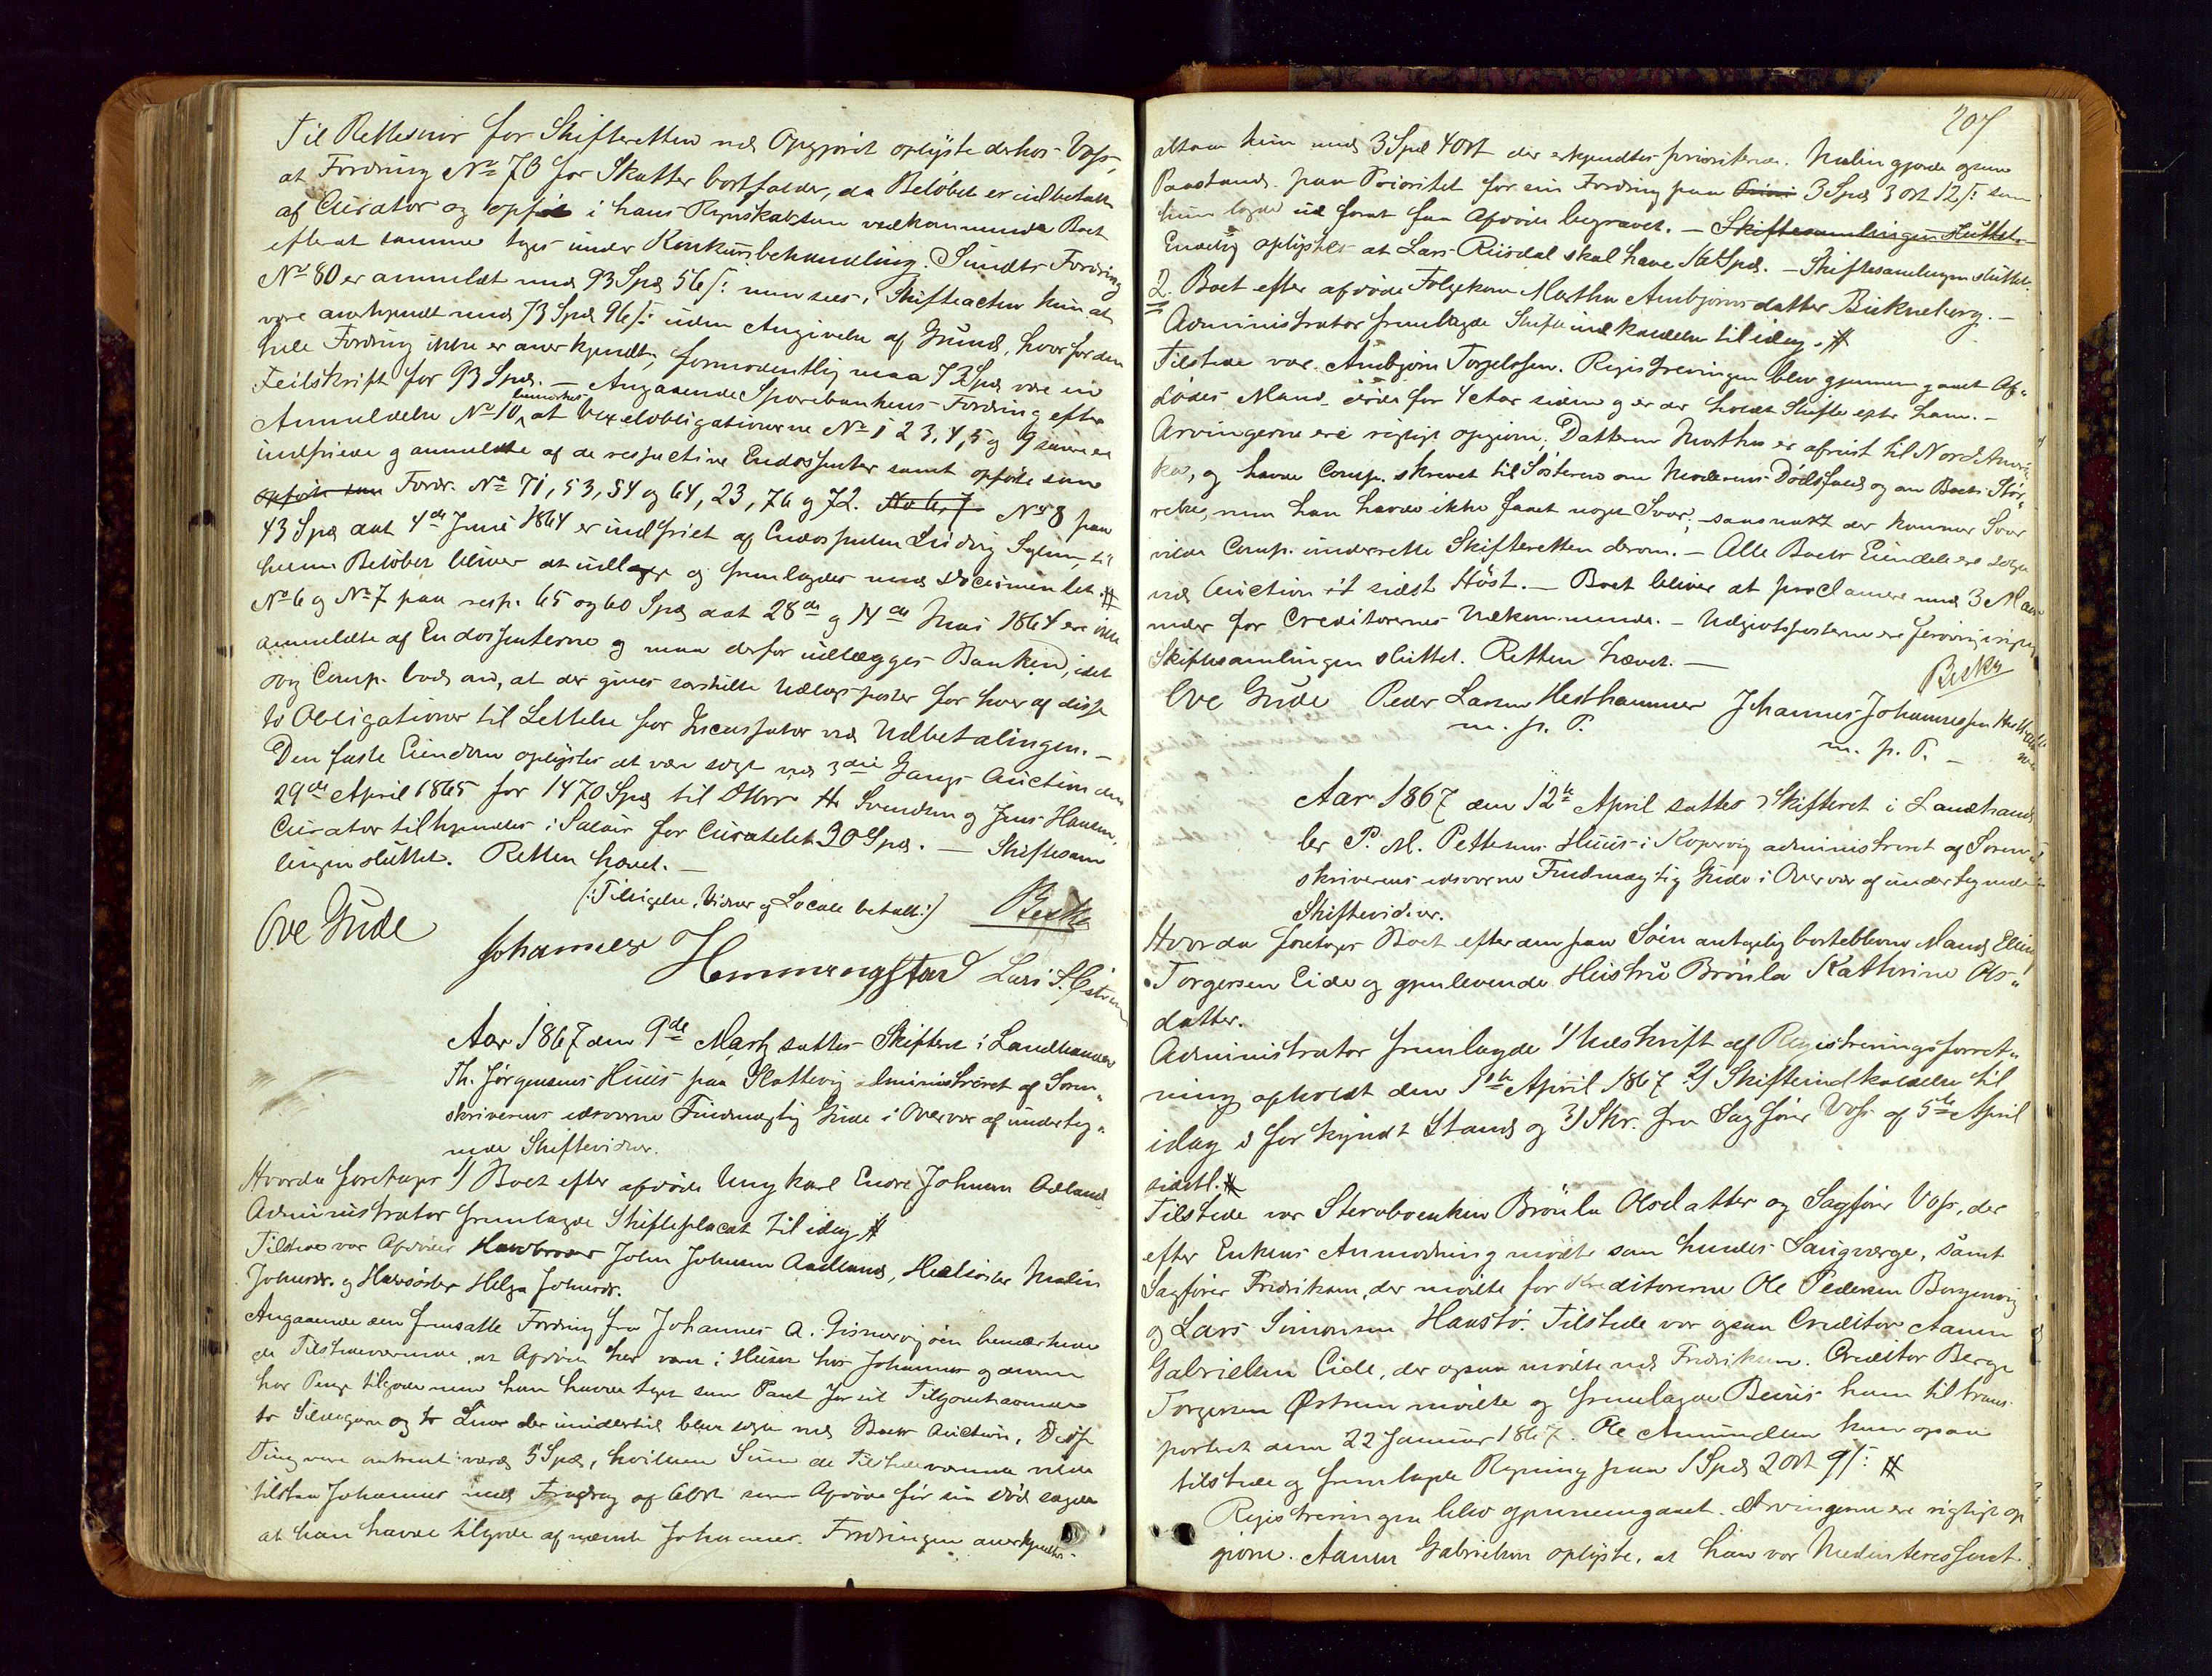 Til Rettesnor for Skifteretten ved Opgjøret oplyste derhos Voss,
at Fordring No 78 for Skatter bortfalder, da Beløbet er indbetalt
af Curator og opført i hans Regnskab som vedkommende Boet
efterat samme toges under Konkursbehandling. Sundts Fordring
No 80 er anmeldt med 93 Spd 56 s: men sees i Skifteacten kun at
være anerkjendt med 73 Spd 96 s: uden Angivelse af Grund, hvorfor den
hele Fordring ikke er anerkjendt, formodentlig maa 73 Spd være en
Feilskrift for 93 Spd. — Angaaende Sparebankens Fordring efter
Anmeldelse No 10, bemærkes at Vexelobligationerne No 1 2 3, 4, 5 og 9 senere er
indfriede og anmeldte af de respective Endossenter samt opførte som
opførte som Fordr. No 71, 53, 54 og 64, 23, 76 og 72. No 6, 7 No 8 paa
43 Spd dat 4de Juni 1864 er indfriet af Endossenten Ludvig til
hvem Beløbet bliver at udlægge og fremlagdes med Documentet #
No 6 og No 7 paa resp. 65 og 60 Spd dat 28de og 14de Mai 1864 ere ikke
anmeldte af Endossenterne og maa derfor udlægges Banken, idet
Comp. bad om, at der gives særskilte Udlægsposter for hver af disse
to Obligationer til Lettelse for Incassator ved Udbetalingen. —
Den faste Eiendom oplystes at være solgt ved 3die Gangs Auction den
29de April 1865 for 1470 Spd til DHrr H. Svendsen og Jens Hansen.
Curator tilkjendtes i Salair for Curatelet 30 Spd. — Skiftesam
lingen sluttet. Retten hævet. —
(: Tilsigelse, Vidner og Locale betalt :) Besku
Ove Gude
Johannes Hemmingstad Lars S.
Aar 1867 den 9de Marts sattes Skifteret i Landhandler
Th. Jørgensens Huus paa Slottevig administreret af Soren„
skriverens edsvorne Fuldmægtig Gude i Overvær af underteg„
nede Skiftevidner.
Hvorda foretoges 1) Boet efter afdøde Ungkarl Endre Johnsen Adland
Administrator fremlagde Skifteplacat til idag #
Tilstede var Afdødes Halvbroder John Johnsen Aadland, Helsøster Malin
Johnsdr. og Halvsøster Helga Johnsdr.
Angaaende den fremsatte Fordring fra Johannes A. Gismervigøen bemærkede
de Tilstedeværende, at Afdøde har været i Huset hos Johannes og denne
har Penge tilgode men han havde taget som Pant for sit Tilgodehavende
to Sildegarn og to Liner der imidlertid blev solgte ved Boets Auction. Disse
Ting vare omtrent værd 5 Spd, hvilken Sum de Tilstedeværende vilde
tilstaa Johannes med Fradrag af 6 Ort som Afdøde før sin Død sagde
at han havde tilgode af nævnte Johannes. Fordringen anerkjendtes

207
altsaa kun med 3 Spd 4 Ort der erkjendtes prioriteret. Malin gjorde ogsaa
Paastand paa Prioritet for sin Fordring paa 3 Spd 3 Ort 12 s: som
hun lagde ud forat faa Afdøde begravet. — Skiftesamlingen sluttet.
Endelig oplystes at Lars Riisdal skal have 1 Ort Spd. — Skiftesamlingen sluttet.
2. Boet efter afdøde Følgekone Martha Ambjørnsdatter Bukneberg. —
Administrator fremlagde Skifteindkaldelse til idag. #
Tilstede var Ambjørn Torgelssen. Registreringen blev gjennemgaaet. Af„
dødes Mand døde for 4 Aar siden og er der holdt Skifte efter ham. —
Arvingerne ere rigtigt opgivne. Datteren Martha er afreist til Nord Ameri
ka, og havde Comp. skrevet til Søsteren om Moderens Dødsfald og om Boets Stør„
relse, men han havde ikke faaet noget Svar; saasnart der kommer Svar
vilde Comp. underrette Skifteretten derom. — Alle Boets Eiendele ere solgte
ved Auction sidst Høst. — Boet bliver at proclamere med 3 Maa
neder for Creditorernes Vedkommende. — Udgiftsposterne ere
Skiftesamlingen sluttet. Retten hævet. —
Besku
Ove Gude Peder Larsen Hesthammer Johannes Johannessen
m. p. P. m. p. P. —
Aar 1867 den 12te April sattes Skifteret i Landhand
ler P. M. Pettersens Huus i Kopervig administreret af Soren
skriverens edsvorne Fuldmægtig Gude i Overvær af undertegnede
Skiftevidner.
Hvorda foretoges Boet efter den paa Søen antagelig bortblevne Mand Elling
Torgersen Eide og gjenlevende Hustru Brønla Kathrine Ols„
datter.
Administrator fremlagde 1) Udskrift af Registreringsforret„
ning afholdt den 1ste April 1867 2) Skifteindkaldelse til
idag i forkyndt Stand og 3) Skr. fra Sagfører Voss af 5te April
sidstl. #
Tilstede var Stervboenken Brønla Olsdatter og Sagfører Voss, der
efter Enkens Anmodning mødte som hendes Laugværge, samt
Sagfører Fredriksen, der mødte for Kreditorerne Ole Pedersen Borgenvig
og Lars Simonsen Haustø. Tilstede var ogsaa Creditor Aanen
Gabrielsen Eide, der ogsaa mødte ved Fredriksen. Creditor Berge
Torgersen Østrem mødte og fremlagde Beviis ham til trans
porteret den 22 Januar 1867. Ole Amundsen kom ogsaa
tilstede og fremlagde Regning paa 1 Spd 2 Ort 9 s: #
Registreringen blev gjennemgaaet. Arvingerne ere rigtigt op
givne. Aanen Gabrielsen oplyste, at han var Medinteressent